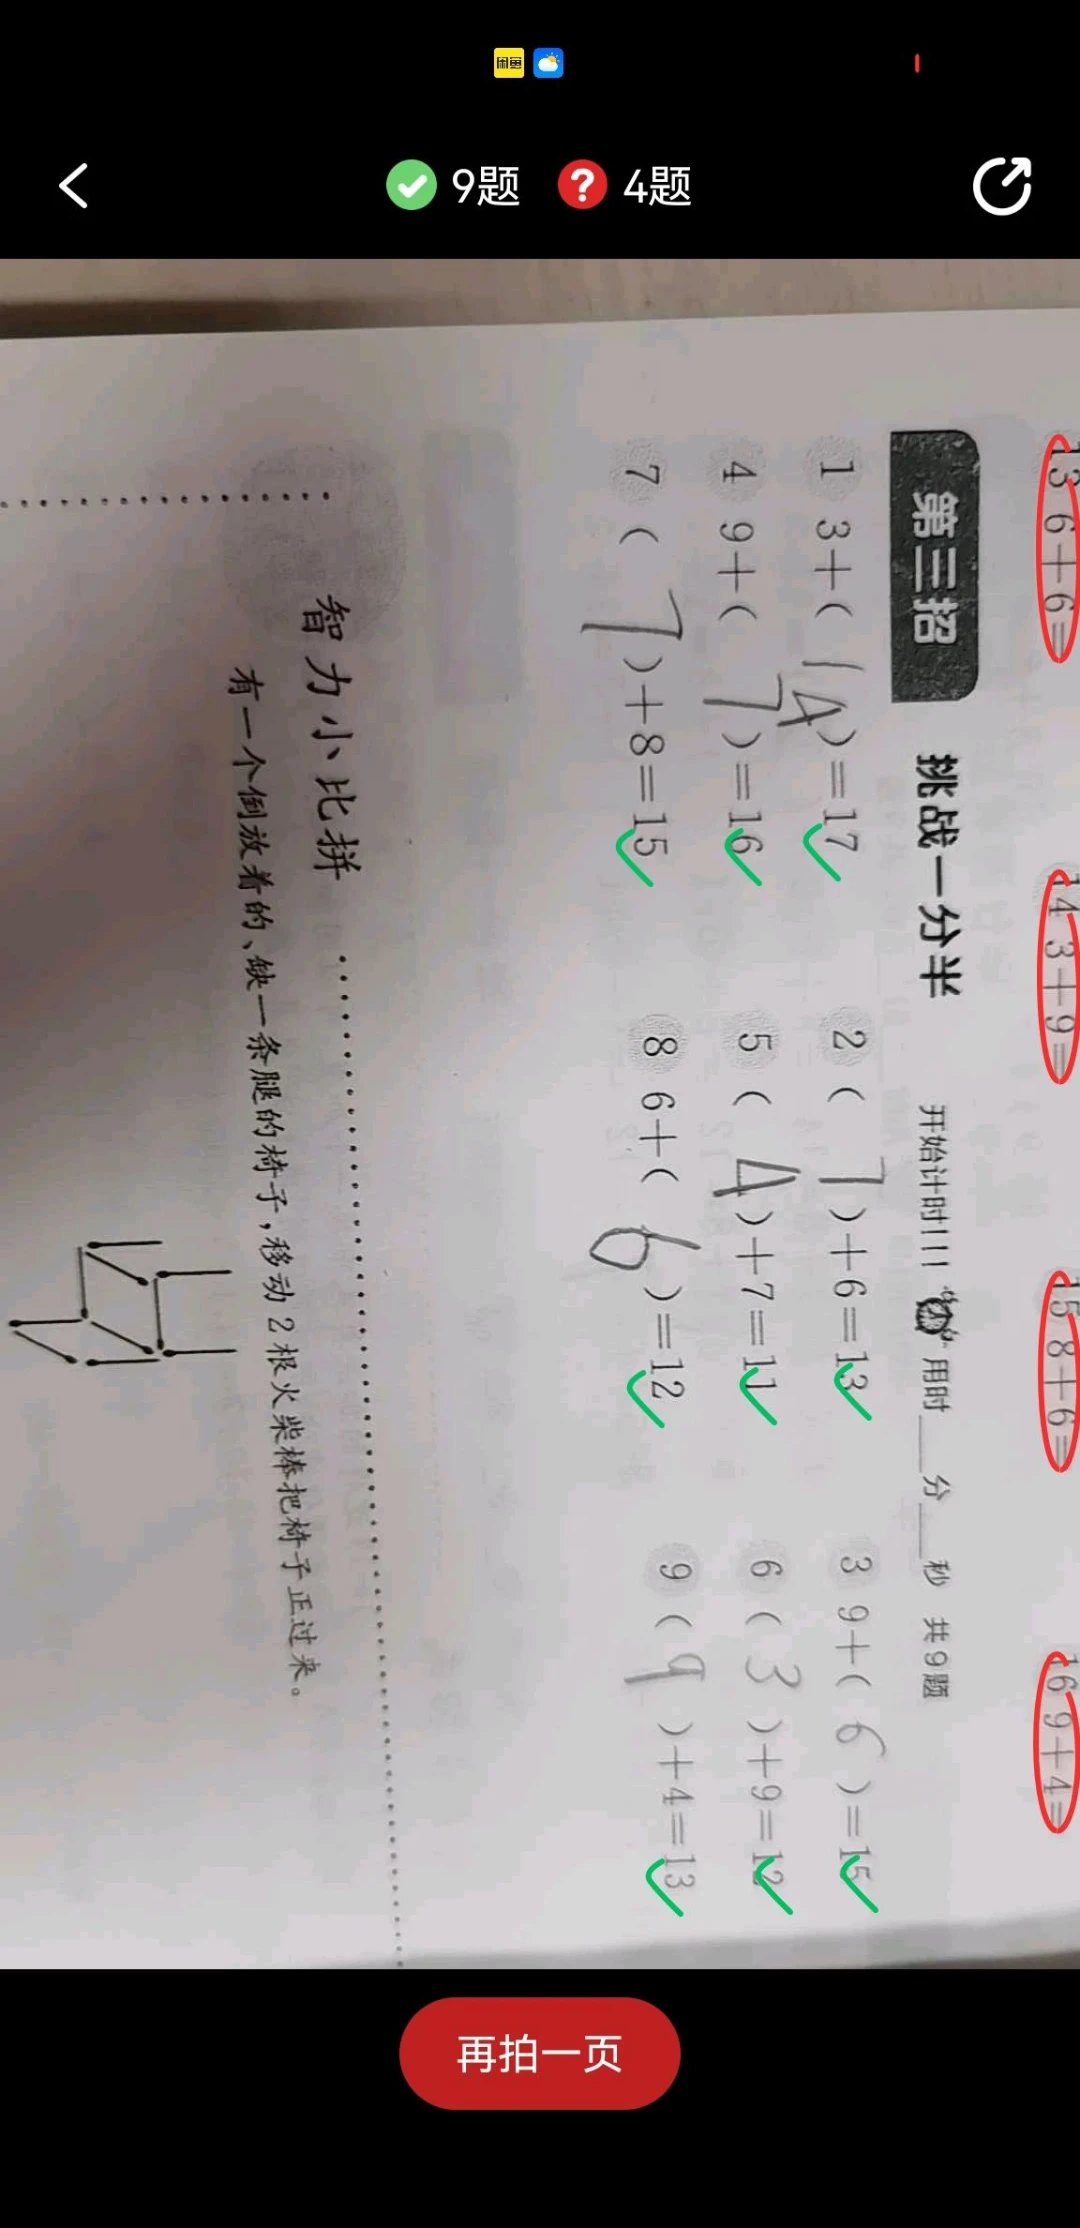 闲鱼
9题 4题
13 6+6=
14 3+9=
15 8+6=
16 9+4=
第三招 挑战一分半 开始计时!!! 用时__分__秒 共9题
1 3+(14)=17
2 (7)+6=13
3 9+(6)=15
4 9+(7)=16
5 (4)+7=11
6 (3)+9=12
7 (7)+8=15
8 6+(6)=12
9 (9)+4=13
智力小比拼
有一个倒放着的、缺一条腿的椅子,移动2根火柴棒把椅子正过来。
再拍一页